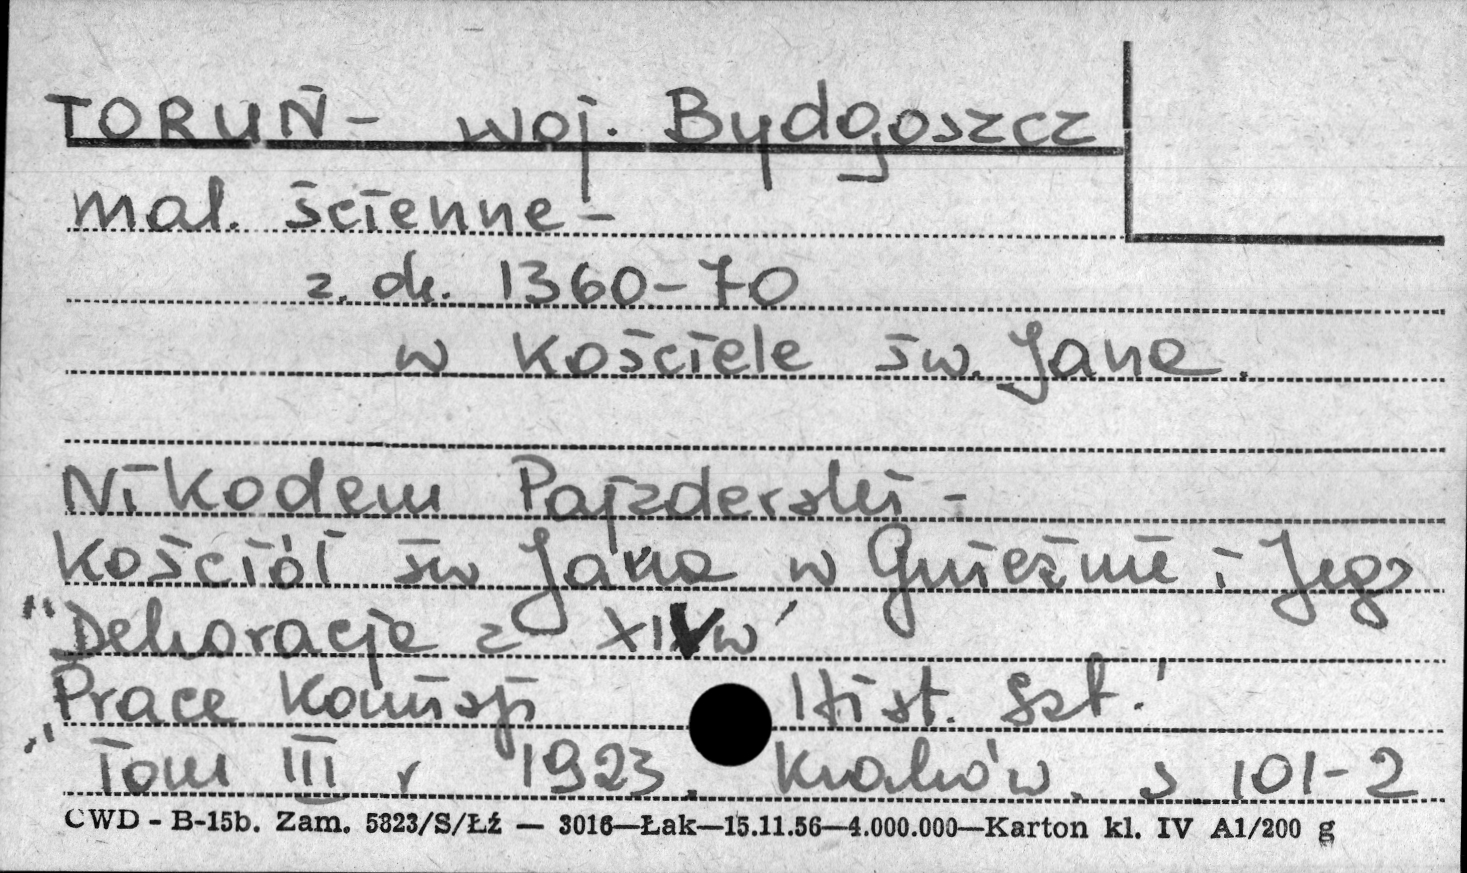 TORUŃ - woj. Bydgoszcz
mal. ścienne -
z. ok. 1360-70
w kościele św. Jana.
Nikodem Pajzderski -
Kościół św Jana w Gnieźnie i Jego
"Dekoracje z XIVw"
Prace Komisji Hist. Szt.'
" Tom III r 1923. Kraków. s 101-2
CWD - B-15b. Zam. 5823/S/Łź — 3016—Łak—15.11.56—4.000.000—Karton kl. IV A1/200 g